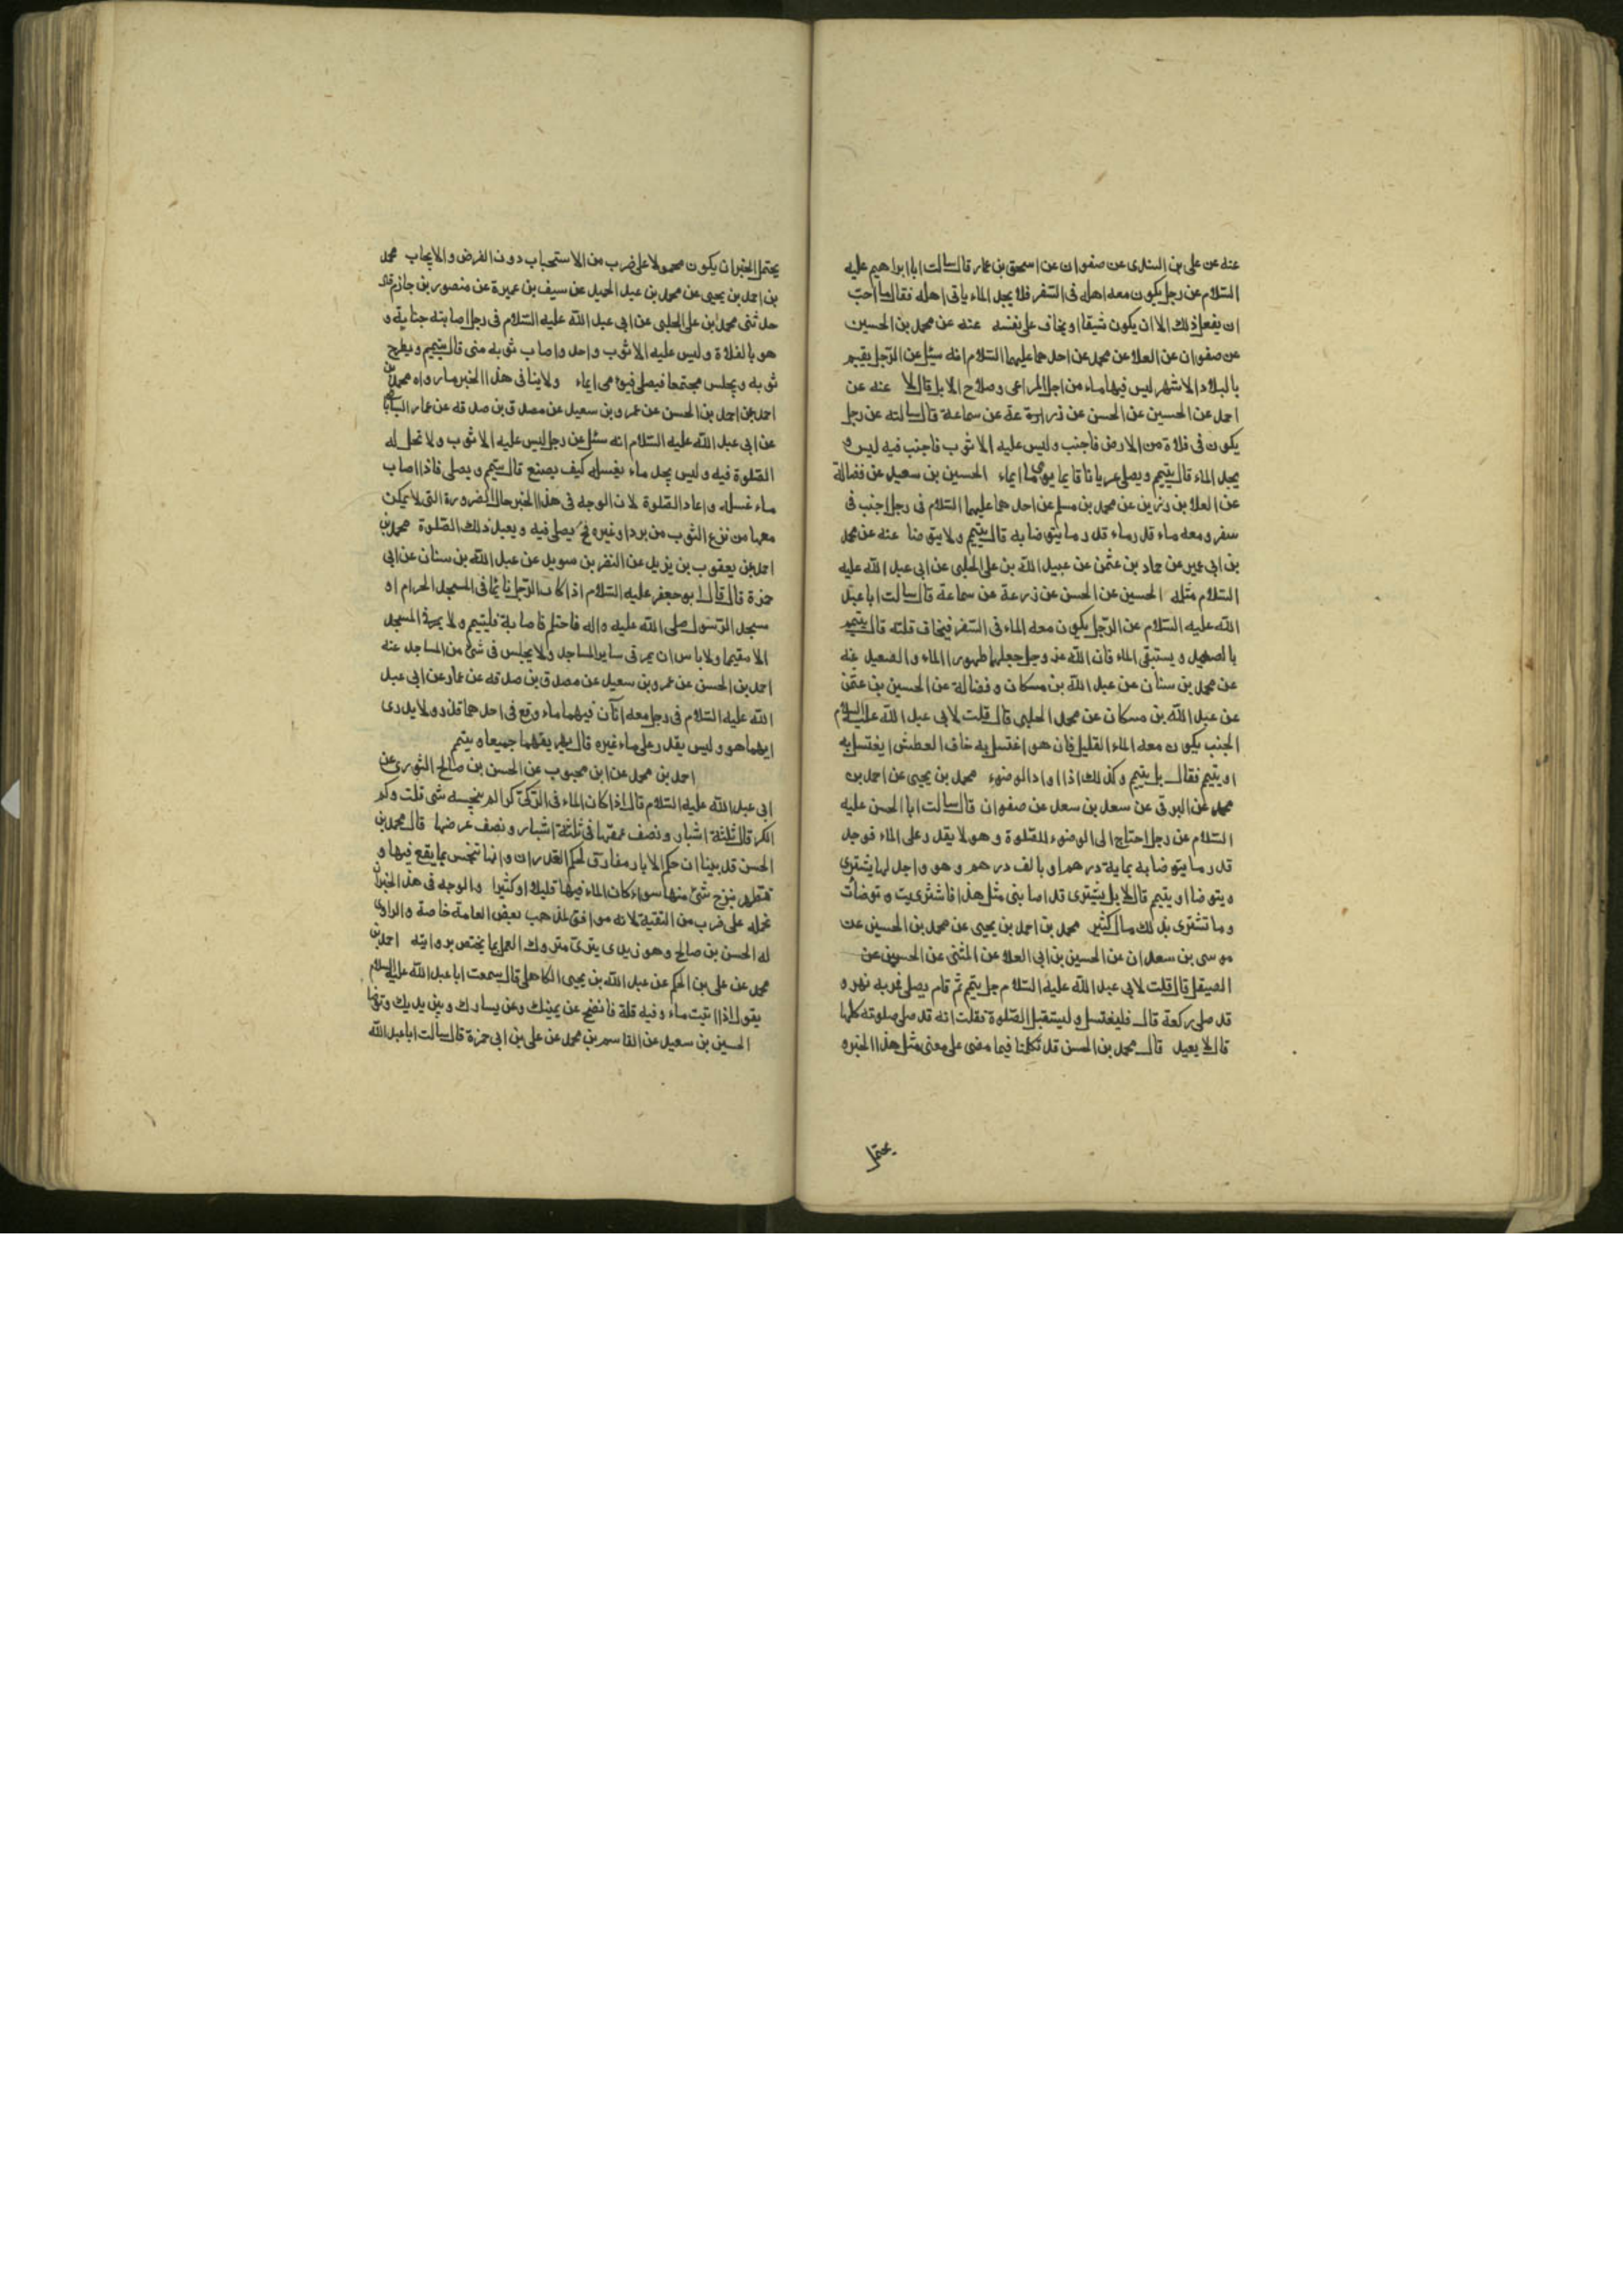 عنه عن على بن السندى عن صفوان عن اسحق بن عمار قال سالت ابا ابراهيم عليه
السّلام عن رجل يكون معه اهله فى السّفر فلا يجد الماء ياتى اهله فقال ما احبّ
ان يفعل ذلك الا ان يكون شبقا او يخاف على نفسه عنه عن محمد بن الحسين
عن صفوان عن العلا عن محمد عن احدهما عليهما السّلام انه سئل عن الرّجل يقيم
بالبلاد الاشهر ليس فيها ماء من اجل المراعى وصلاح الابل قال لا عنه عن
احمد عن الحسين عن الحسن عن زرعة عن سماعة قال سالته عن رجل
يكون فى فلاة من الارض فاجنب وليس عليه الا ثوب فاجنب فيه ليس
يجد الماء قال يتيمم ويصلى عريانا قايما يومى ايماء الحسين بن سعيد عن فضالة
عن العلا بن رزين عن محمد بن مسلم عن احدهما عليهما السّلام فى رجل اجنب فى
سفر ومعه ماء قدر ماء قدر ما يتوضا به قال يتيمم ولا يتوضا عنه عن محمد
بن ابى عمير عن حماد بن عثمن عن عبيد الله بن على الحلبى عن ابى عبد الله عليه
السّلام مثله الحسين عن الحسن عن زرعة عن سماعة قال سالت ابا عبد
الله عليه السّلام عن الرّجل يكون معه الماء فى السّفر فيخاف قلته قال يتيمم
بالصعيد ويستبقى الماء فان الله عز وجل جعلهما طهورا الماء والصعيد عنه
عن محمد بن سنان عن عبد الله بن مسكان وفضالة عن الحسين بن عثمن
عن عبد الله بن مسكان عن محمد الحلبى قال قلت لابى عبد الله عليه السلام
الجنب يكون معه الماء القليل فان هو اغتسل به خاف العطش ايغتسل به
او يتيمم فقال بل يتيمم وكذلك اذا اراد الوضوء محمد بن يحيى عن احمد بن
محمد عن البرقى عن سعد بن سعد عن صفوان قال سالت ابا الحسن عليه
السّلام عن رجل احتاج الى الوضوء للصّلوة وهو لا يقدر على الماء فوجد
قدر ما يتوضا به بماية درهم او بالف درهم وهو واجد لها يشترى
ويتوضا او يتيمم قال لا بل يشترى قد اصابنى مثل هذا فاشتريت وتوضأت
وما تشترى بذلك مال كثير محمد بن احمد بن يحيى عن محمد بن الحسين عن
موسى بن سعدان عن الحسين بن ابى العلا عن المثنى عن الحسن عن
الصيقل قال قلت لابى عبد الله عليه السّلام رجل يتيمم ثم قام يصلى فمر به نهر و
قد صلى ركعة قال فليغتسل وليستقبل الصّلوة فقلت انه قد صلى صلوته كلها
قال لا يعيد قال محمد بن الحسن قد تكلمنا فيما مضى على معنى مثل هذا الخبر و
يحتمل
يحتمل الخبر ان يكون محمولا على ضرب من الاستحباب دون الفرض والايجاب محمد
بن احمد بن يحيى عن محمد بن عبد الحميد عن سيف بن عميرة عن منصور بن حازم قال
حدثنى محمد بن على الحلبى عن ابى عبد الله عليه السّلام فى رجل اصابته جنابة و
هو بالفلاة وليس عليه الا ثوب واحد واصاب ثوبه منى قال يتيمم ويطرح
ثوبه ويجلس مجتمعا فيصلى فيومى ايماء ولا ينافى هذا الخبر ما رواه محمد بن
احمد عن احمد بن الحسن عن عمرو بن سعيد عن مصدق بن صدقه عن عمار الساباطى
عن ابى عبد الله عليه السّلام انه سئل عن رجل ليس عليه الا ثوب ولا تحل له
الصّلوة فيه وليس يجد ماء يغسله كيف يصنع قال يتيمم ويصلى فاذا اصاب
ماء غسله واعاد الصّلوة لان الوجه فى هذا الخبر حال الضرورة التى لا يمكن
معها من نزع الثوب من برد او غيره فح يصلى فيه ويعيد ذلك الصّلوة محمد بن
احمد عن يعقوب بن يزيد عن النضر بن سويد عن عبد الله بن سنان عن ابى
حمزة قال قال ابو جعفر عليه السّلام اذا كان الرّجل نايما فى المسجد الحرام او
مسجد الرّسول صلى الله عليه واله فاحتلم فاصابة فليتيمم ولا يمر فى المسجد
الا متيمما ولا باس ان يمر فى ساير المساجد ولا يجلس فى شئ من المساجد عنه
احمد بن الحسن عن عمرو بن سعيد عن مصدق بن صدقه عن عمار عن ابى عبد
الله عليه السّلام فى رجل معه اناآن فيهما ماء وقع فى احدهما قذر ولا يدرى
ايهما هو وليس يقدر على ماء غيره قال يهريقهما جميعا ويتيمم
احمد بن محمد عن ابن محبوب عن الحسن بن صالح الثورى عن
ابى عبد الله عليه السّلام قال اذا كان الماء فى الرّكىّ كرا لم ينجسه شى قلت وكم
الكر قال ثلثة اشبار ونصف عمقها فى ثلثة اشبار ونصف عرضها قال محمد بن
الحسن قد بينا ان حكم الابار مفارق لحكم الغدران وانها تنجس بما يقع فيها و
تطهر بنزح شئ منها سواء كان الماء فيها قليلا او كثيرا والوجه فى هذا الخبر ان
نحمله على ضرب من التقية لانه موافق لمذهب بعض العامة خاصة والراوى
له الحسن بن صالح وهو زيدى بترى متروك العمل بما يختص بروايته احمد بن
محمد عن على بن الحكم عن عبد الله بن يحيى الكاهلى قال سمعت ابا عبد الله عليه السلام
يقول اذا اتيت ماء وفيه قلة فانضح عن يمينك وعن يسارك وبين يديك وتوضا
الحسين بن سعيد عن القاسم بن محمد عن على بن ابى حمزة قال سالت ابا عبد الله